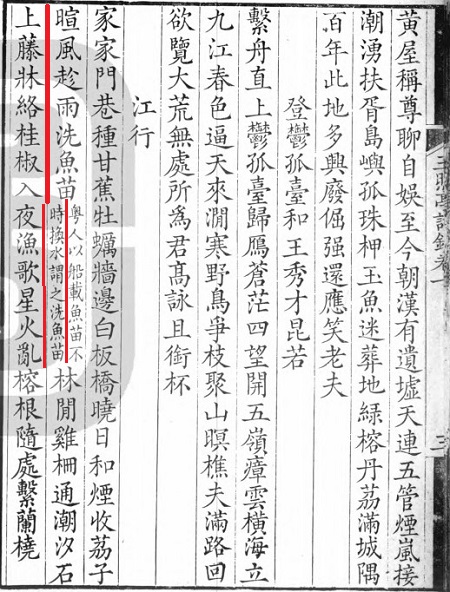 黄屋稱尊聊自娛至今朝漢有遺墟天連五管煙嵐接
潮湧扶胥島嶼孤珠柙玉魚迷葬地綠榕丹荔滿城隅
百年此地多興廢倔强還應笑老夫
登鬱孤臺和王秀才昆若
繫舟直上鬱孤臺歸鴈蒼茫四望開五嶺瘴雲橫海立
九江春色逼天來澗寒野鳥爭枝聚山暝樵夫滿路回
欲覽大荒無處所爲君高詠且銜杯
江行
家家門巷種甘蕉牡蠣牆邊白板橋曉日和煙收荔子
暄風趁雨洗魚苗粤人以船載魚苗不時換水謂之洗魚苗林閒雞柵通潮汐石
上藤牀絡桂椒入夜漁歌星火亂榕根隨處繫蘭橈
三